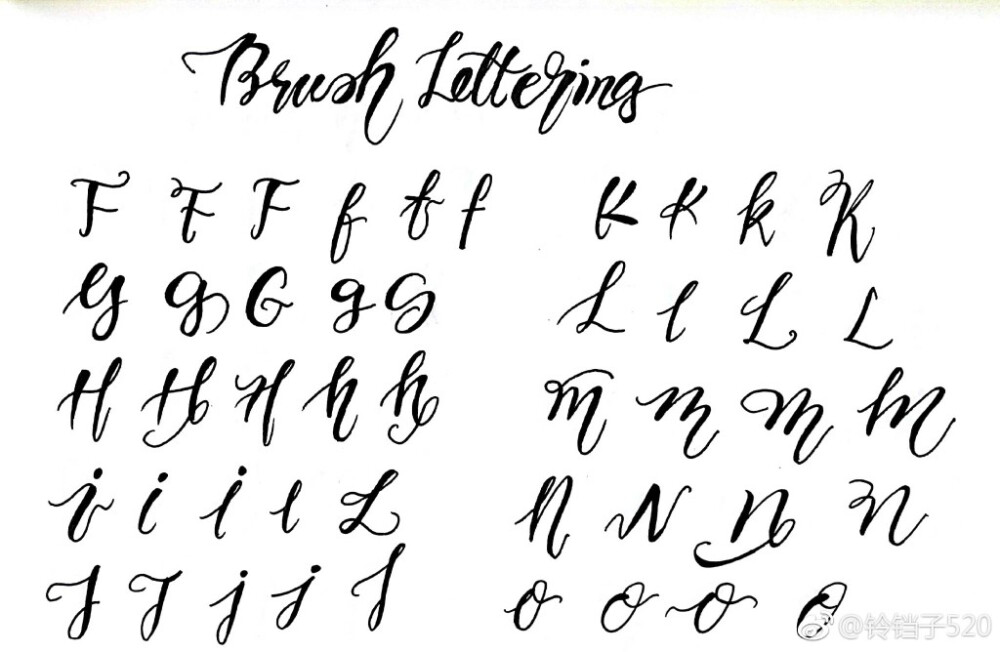 Brush Lettering
F F F f f f
G g G g G
H H H h h
i i i l L
J J j j J
K K k K
L l L L
M M M M
N N N N
O O O O
@铃铛子520